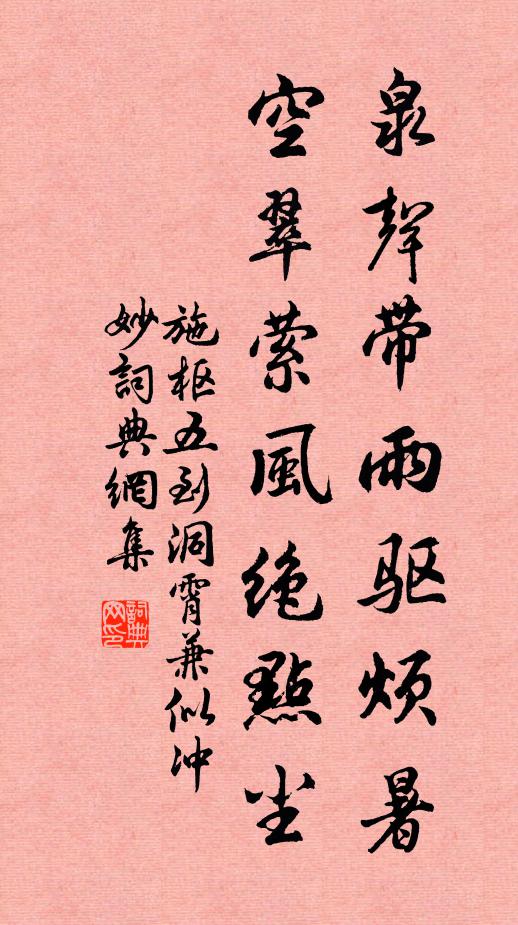 泉聲带雨驱烦暑
空翠萦風绝點尘
施枢五到洞霄兼似冲
妙詞典網集
詞典网印